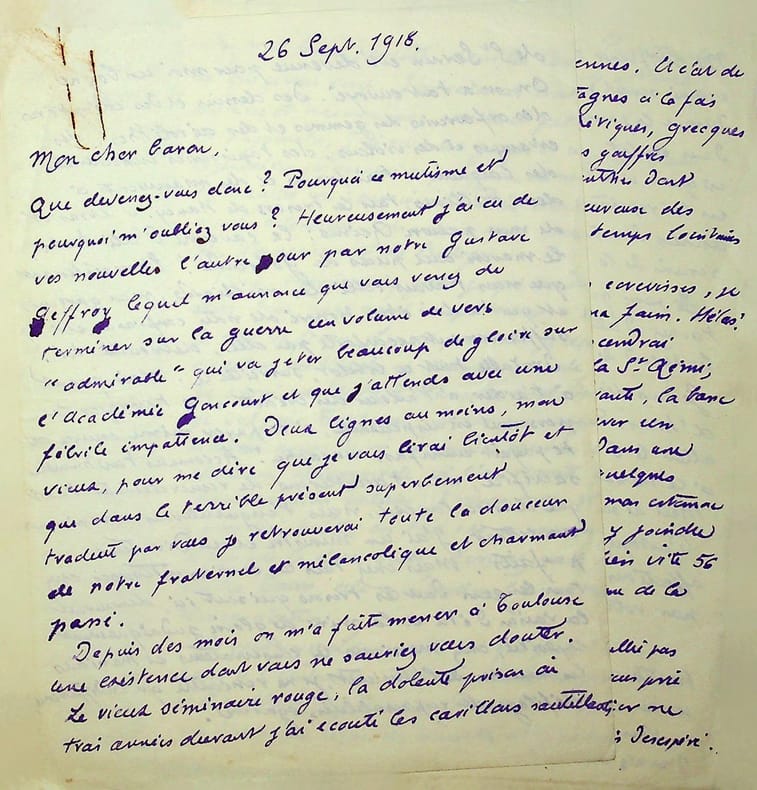 26 Sept. 1918.
Mon cher baron,
Que devenez-vous donc ? Pourquoi ce mutisme et
pourquoi m'oubliez vous ? Heureusement j'ai eu de
vos nouvelles l'autre jour par notre Gustave
Geffroy lequel m'annonce que vous venez de
terminer sur la guerre un volume de vers
"admirable" qui va jeter beaucoup de gloire sur
l'Académie Goncourt et que j'attends avec une
fébrile impatience. Deux lignes au moins, mon
vieux, pour me dire que je vous lirai bientôt et
que dans le terrible présent superbement
traduit par vous je retrouverai toute la douceur
de notre fraternel et mélancolique et charmant
passé.
Depuis des mois on m'a fait mener à Toulouse
une existence dont vous ne sauriez vous douter.
Le vieux séminaire rouge, la dolente prison où
trois années durant j'ai écouté les carillons
ennes. Il c'est de
tagnes à la fois
grecques
gouffres
dont
des
temps lointains
écrevisses, je
faim. Hélas!
la St Rémi,
la banc
un
Dans une
quelques
mon estomac
y joindre
vite 56
de la
pas
ne
désespéré.